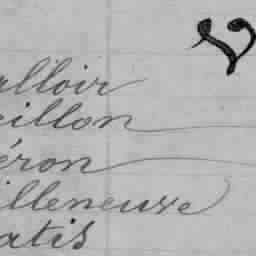 V
alloir
illon
éron
illeneuve
atis